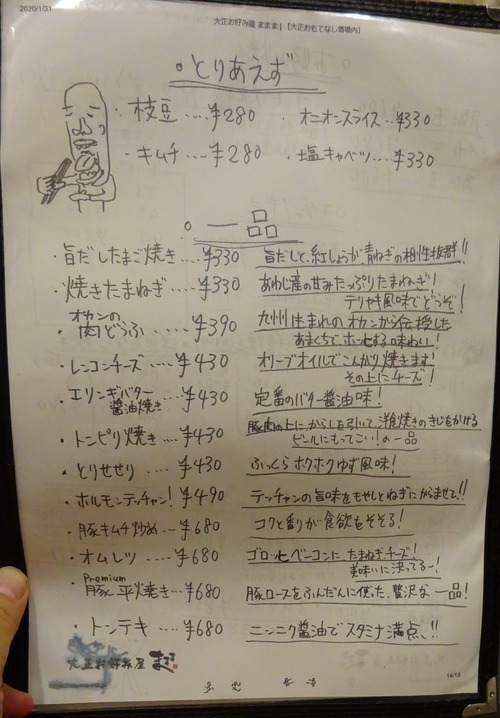 2020/1/31
大正お好み屋 まままj 【大正おもてなし酒場内】
・とりあえず
・枝豆....¥280
・オニオンスライス..¥330
・キムチ....¥280
・塩キャベツ....¥330
・一品
・旨だしたまご焼き....¥330 旨だしと、紅しょうが青ねぎの相性抜群!!
・焼きたまねぎ....¥330 あわじ産の甘みたっぷりたまねぎ!
テリヤキ風味でどうぞ!
・オカンの
肉どうふ....¥390 九州生まれのオカンから伝授した
あまくちで、ホッとする味わい!
・レンコンチーズ....¥430 オリーブオイルでこんがり焼きます!
その上にチーズ!
・エリンギバター
醤油焼き...¥430 定番のバター醤油味!
・トンピリ焼き...¥430 豚肉の上に、からしを引いて、洋食焼きのきじをかける
ビールにもってこい!の一品
・とりせせり....¥430 ふっくらホクホクゆず風味!
・ホルモンテッチャン!¥490 テッチャンの旨味をもやしとねぎにからませて!!
・豚キムチ炒め...¥680 コクと香りが食欲をそそる!
・オムレツ....¥680 ゴロッとベーコンに、たまねぎ、チーズ!
美味いに決ってるー!
Premium
・豚平焼き...¥680 豚ロースをふんだんに使った、贅沢な一品!
・トンテキ....¥680 ニンニク醤油でスタミナ満点、!!
大正お好み屋
14/15